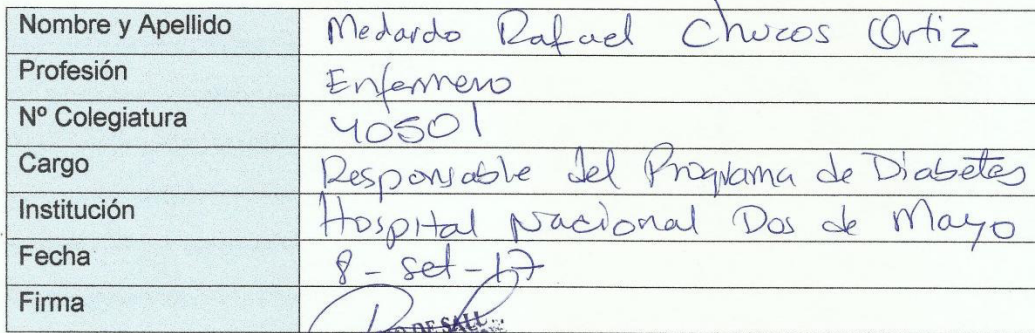 Nombre y Apellido Medardo Rafael Chucos Ortiz
Profesión Enfermero
Nº Colegiatura 40501
Cargo Responsable del Programa de Diabetes
Institución Hospital Nacional Dos de Mayo
Fecha 8 - set - 17
Firma
DE SALU